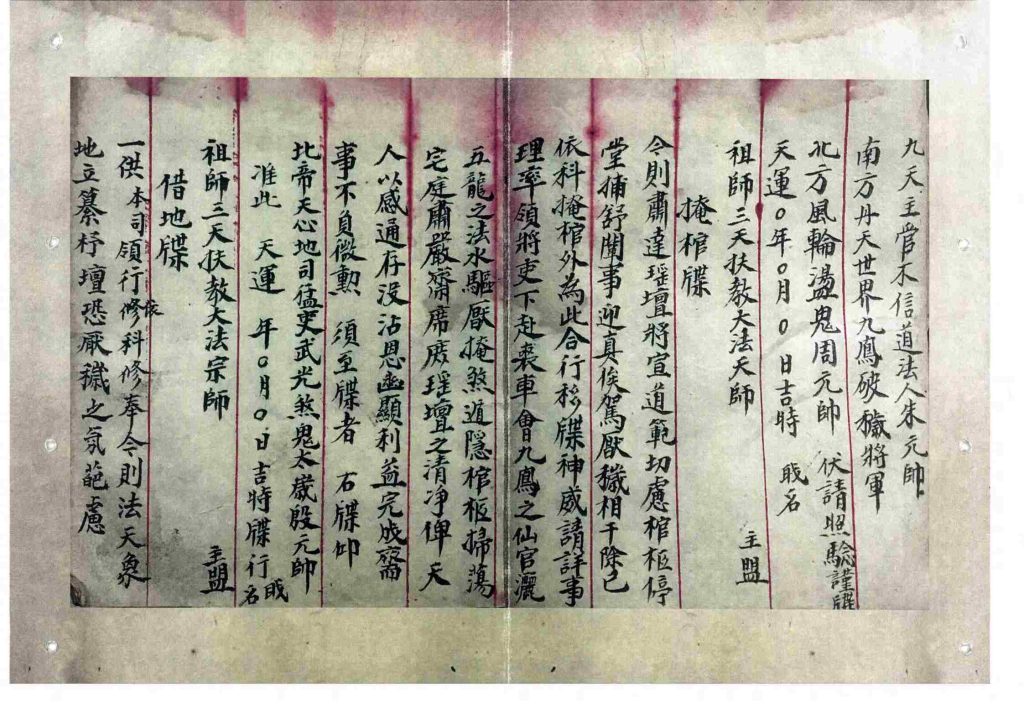 九天主管不信道法人朱元帥
南方丹天世界九鳳破穢將軍
北方風輪盪鬼周元帥　伏請照驗謹牒
天運〇年〇月〇日吉時　戝名
祖師三天扶教大法天師　主盟
掩棺牒
令則肅達瑶壇將宣道範切慮棺柩停
堂捕舒闡事迎真俟駕厭穢相干除已
依科掩棺外為此合行移牒神威請詳事
理率領將吏下赴喪車會九鳳之仙官灑
五龍之法水驅厭掩煞遁隱棺柩掃蕩
宅庭肅嚴齋席庶瑶壇之清净俾天
人以感通存没沾恩幽顯利益完成齋
事不負微勲　須至牒者　右牒仰
北帝天心地司猛吏武光煞鬼太歲殷元帥
准此　天運　年〇月〇日吉時牒行戝名
祖師三天扶教大法宗師　主盟
借地牒
一供本司領行依修科修奉令則法天象
地立纂杼壇恐厭穢之氛葩慮